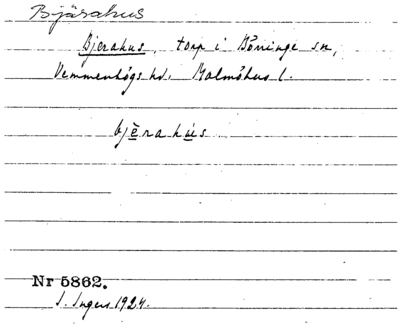 Bjärahus
Bjerahus, torp i Börringe sn,
Vemmenhögs hd. Malmöhus l.
bjèrahús
Nr 5862.
I. Ingers 1924.